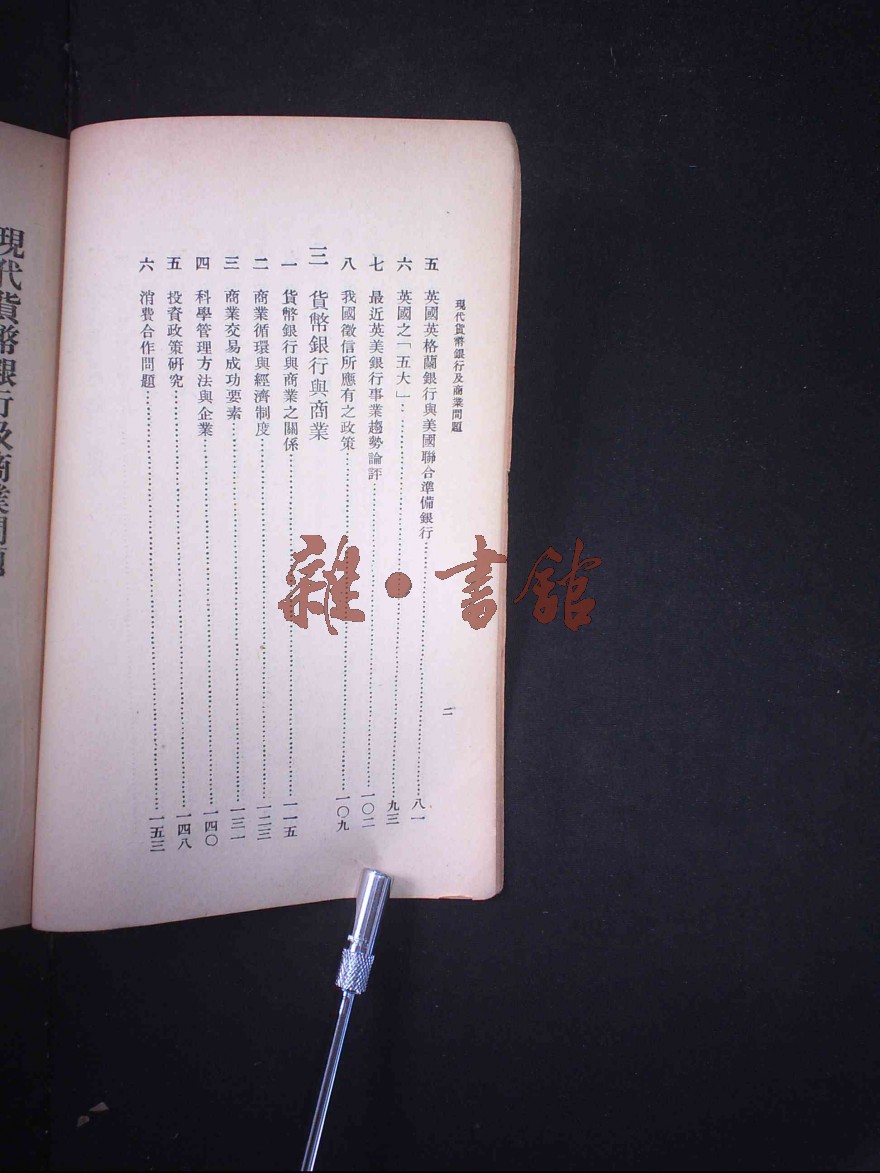 現代貨幣銀行及商業問題
二
五 英國英格蘭銀行與美國聯合準備銀行……八一
六 英國之「五大」……九三
七 最近英美銀行事業趨勢論評……一〇二
八 我國徵信所應有之政策……一〇九
三 貨幣銀行與商業
一 貨幣銀行與商業之關係……一一五
二 商業循環與經濟制度……一二三
三 商業交易成功要素……一三一
四 科學管理方法與企業……一四〇
五 投資政策研究……一四八
六 消費合作問題……一五三
現代貨幣銀行及商業問題
雜·書館